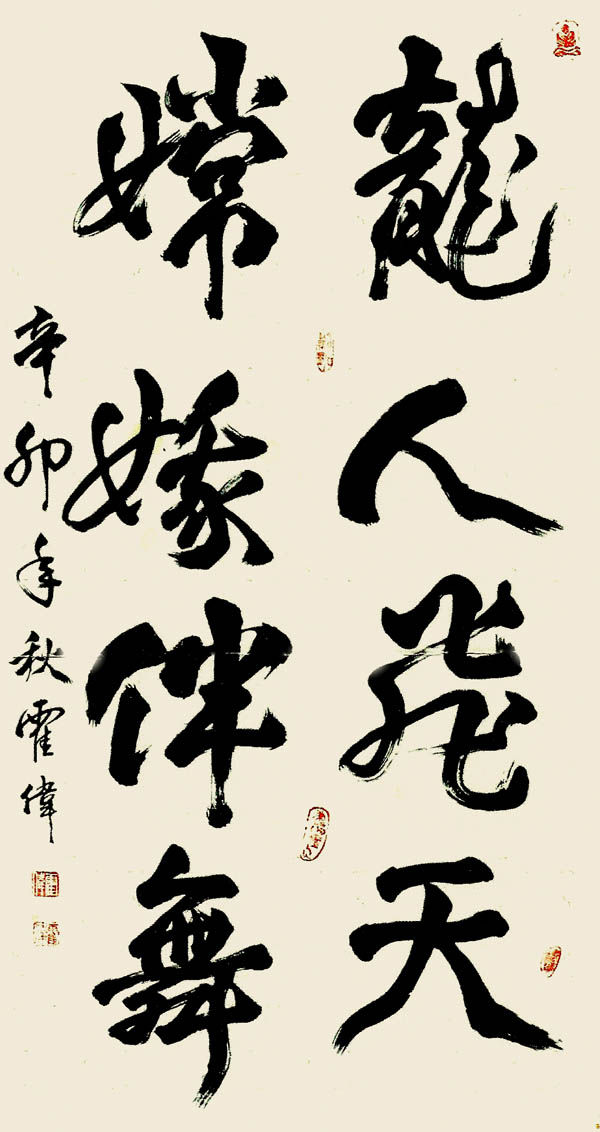 龍人飛天
嫦娥伴舞
辛卯年秋霍偉